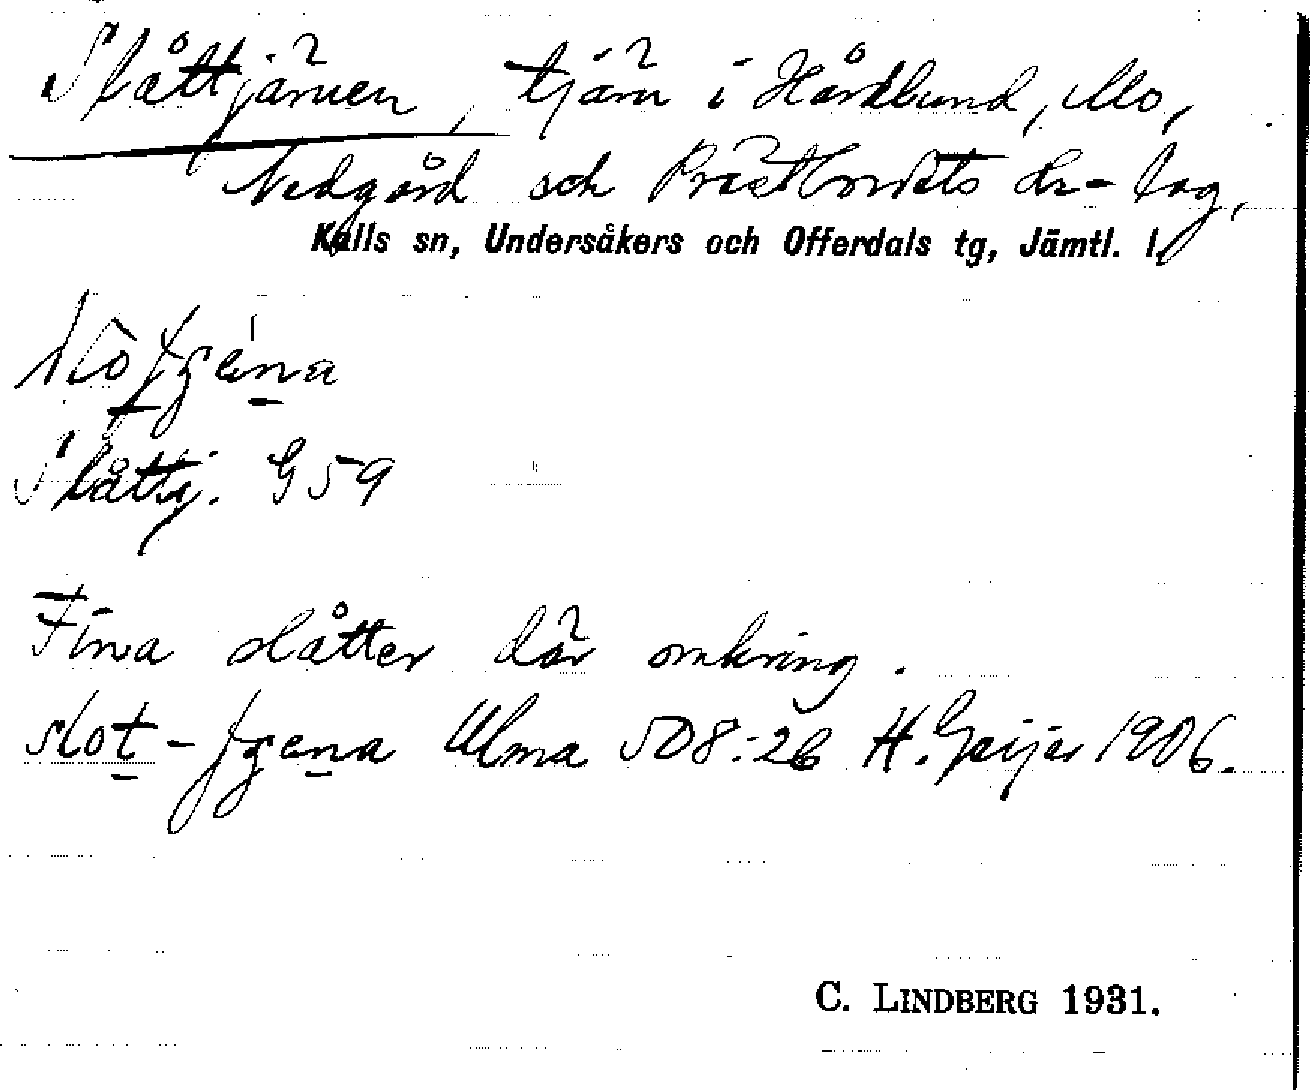 Slåttjärnen, tjärn i Hårdlund, Mo,
Nedgård och Prästbordets
Kalls sn, Undersåkers och Offerdals tg, Jämtl. l.
Slåttj. G59
Fina slåtter där omkring.
Ulma 508:26 H. Geijer 1906.
C. LINDBERG 1931.